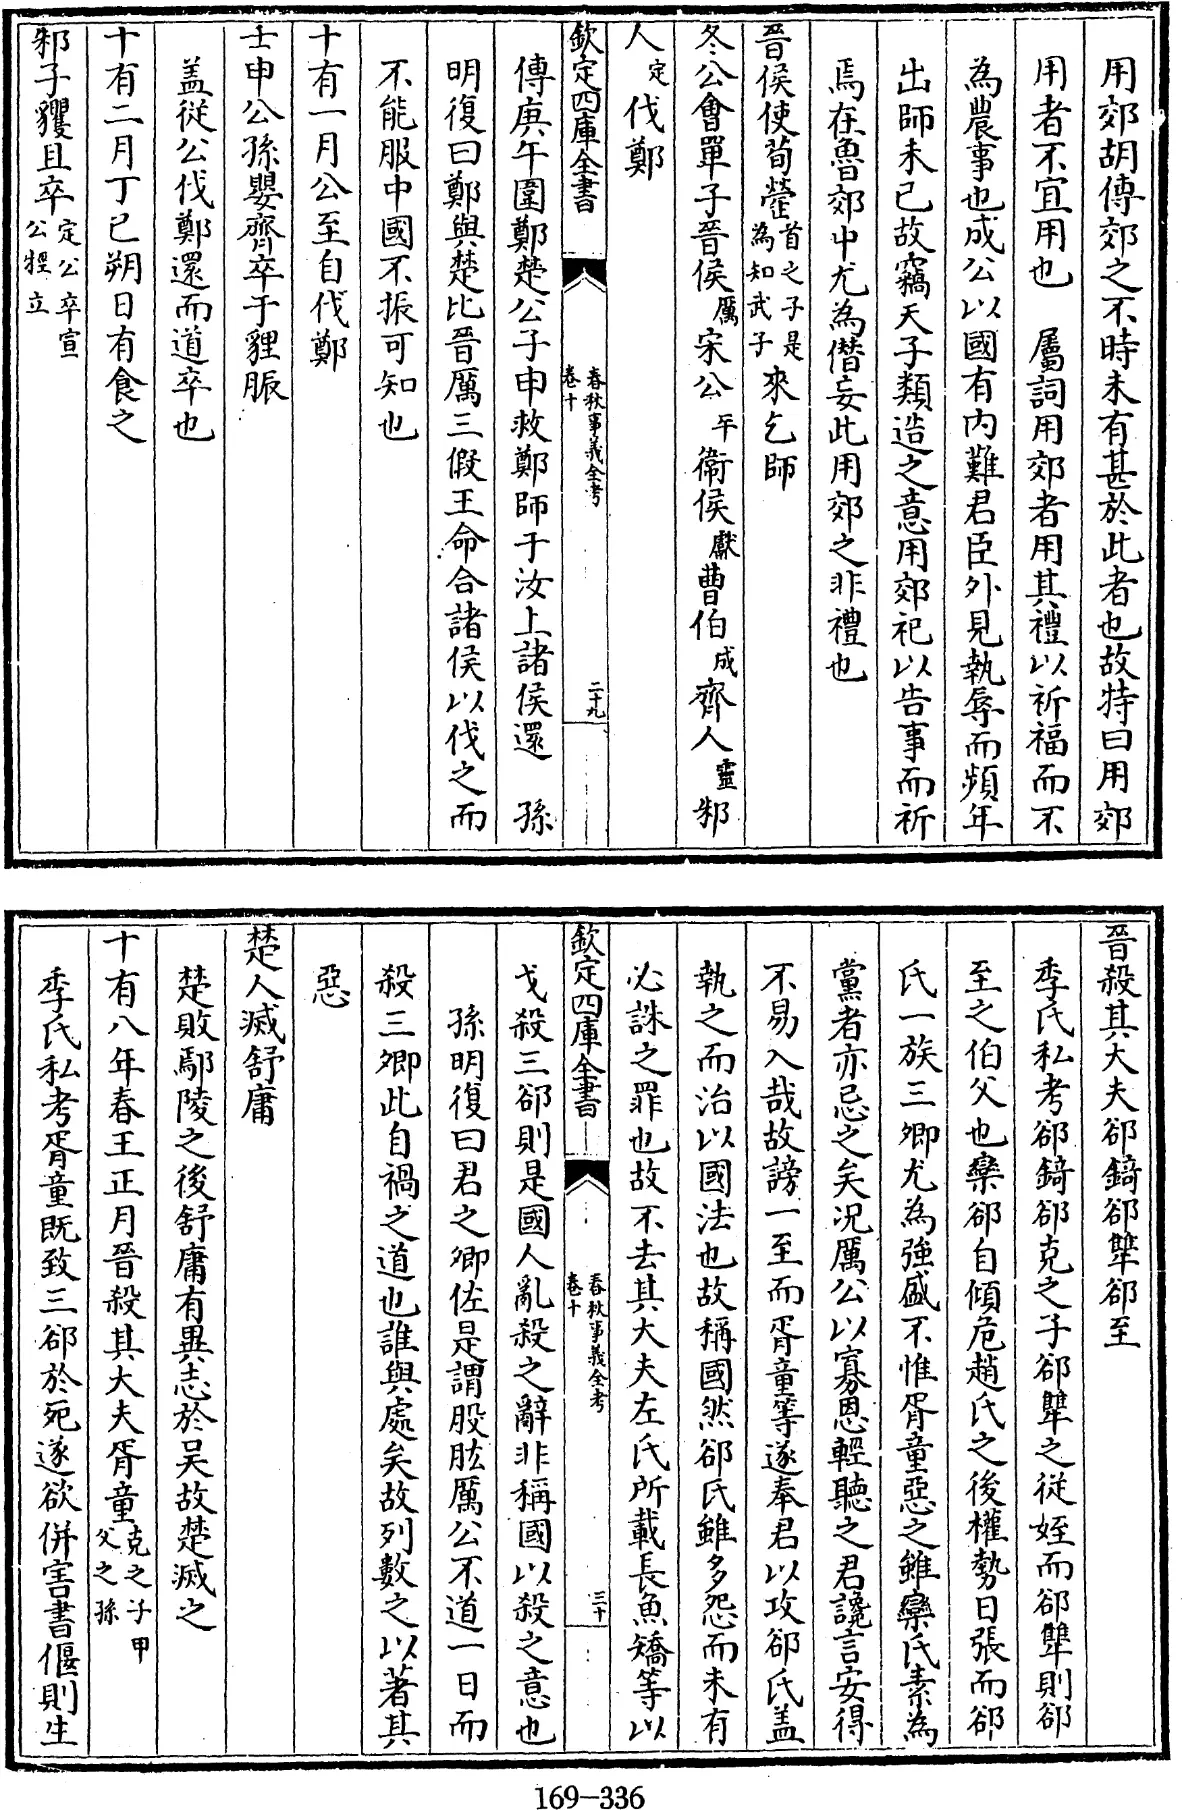 用郊胡傳郊之不時未有甚於此者也故特曰用郊
用者不宜用也　屬詞用郊者用其禮以祈福而不
為農事也成公以國有内難君臣外見執辱而頻年
出師未已故竊天子類造之意用郊祀以告事而祈
焉在魯郊中尤為僭妄此用郊之非禮也
晉侯使荀罃首之子是為知武子來乞師
冬公會單子晉侯厲宋公平衛侯獻曹伯成齊人靈邾
人定伐鄭
欽定四庫全書　春秋事義全考卷十　二十九
傳庚午圍鄭楚公子申救鄭師于汝上諸侯還　孫
明復曰鄭與楚比晉厲三假王命合諸侯以伐之而
不能服中國不振可知也
十有一月公至自伐鄭
壬申公孫嬰齊卒于貍脤
盖從公伐鄭還而道卒也
十有二月丁巳朔日有食之
邾子貜且卒定公卒宣公牼立
晉殺其大夫郤錡郤犨郤至
季氏私考郤錡郤克之子郤犨之從姪而郤犨則郤
至之伯父也欒郤自傾危趙氏之後權勢日張而郤
氏一族三卿尤為強盛不惟胥童惡之雖欒氏素為
黨者亦忌之矣况厲公以寡恩輕聽之君讒言安得
不易入哉故謗一至而胥童等遂奉君以攻郤氏盖
執之而治以國法也故稱國然郤氏雖多怨而未有
必誅之罪也故不去其大夫左氏所載長魚矯等以
欽定四庫全書　春秋事義全考卷十　三十
戈殺三郤則是國人亂殺之辭非稱國以殺之意也
孫明復曰君之卿佐是謂股肱厲公不道一日而
殺三卿此自禍之道也誰與處矣故列數之以著其
惡
楚人滅舒庸
楚敗鄢陵之後舒庸有異志於吴故楚滅之
十有八年春王正月晉殺其大夫胥童克之子甲父之孫
季氏私考胥童既致三郤於死遂欲併害書偃則生
169-336